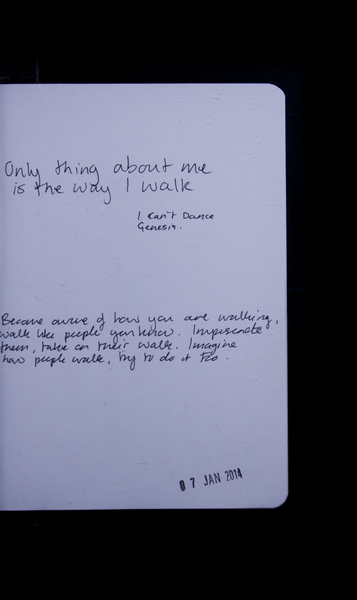 Only thing about me
is the way I walk
I Can't Dance
Genesis.
Become aware of how you are walking,
walk like people you know. Impersonate
them, take on their walk. Imagine
how people walk, try to do it too.
07 JAN 2014